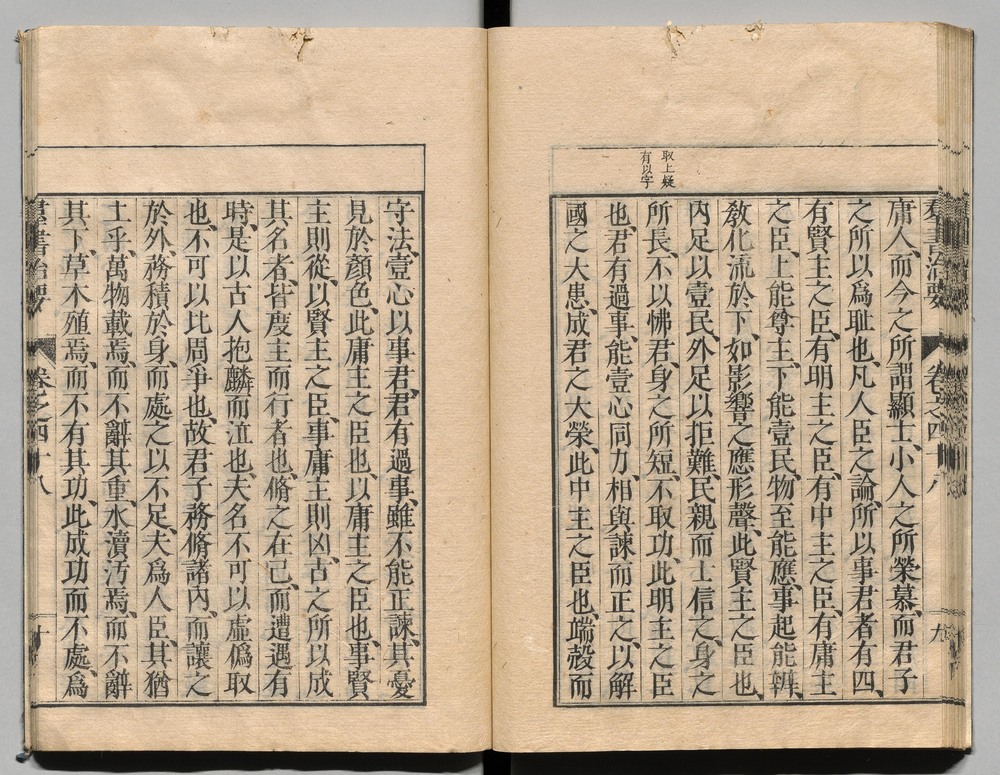 群書治要 卷之四十八 九
庸人、而今之所謂顯士、小人之所榮慕、而君子
之所以爲耻也、凡人臣之論、所以事君者有四、
有賢主之臣、有明主之臣、有中主之臣、有庸主
之臣、上能尊主、下能壹民、物至能應、事起能辨、
敎化流於下、如影響之應形聲、此賢主之臣也、
內足以壹民、外足以拒難、民親而士信之、身之
所長、不以怫君、身之所短、不取功、此明主之臣
也、君有過事、能壹心同力、相與諫而正之、以解
國之大患、成君之大榮、此中主之臣也、端慤而
取上疑
有以字
守法、壹心以事君、君有過事、雖不能正諫、其憂
見於顏色、此庸主之臣也、以庸主之臣也、事賢
主則從、以賢主之臣、事庸主則凶、古之所以成
其名者、皆度主而行者也、脩之在己、而遭遇有
時、是以古人抱麟而泣也、夫名不可以虛僞取
也、不可以比周爭也、故君子務脩諸內、而讓之
於外、務積於身、而處之以不足、夫爲人臣、其猶
土乎、萬物載焉、而不辭其重、水瀆汚焉、而不辭
其下、草木殖焉、而不有其功、此成功而不處、爲
群書治要 卷之四十八 十